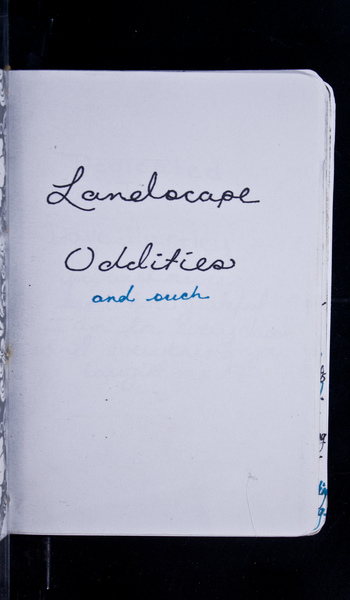 Landscape
Oddities
and such